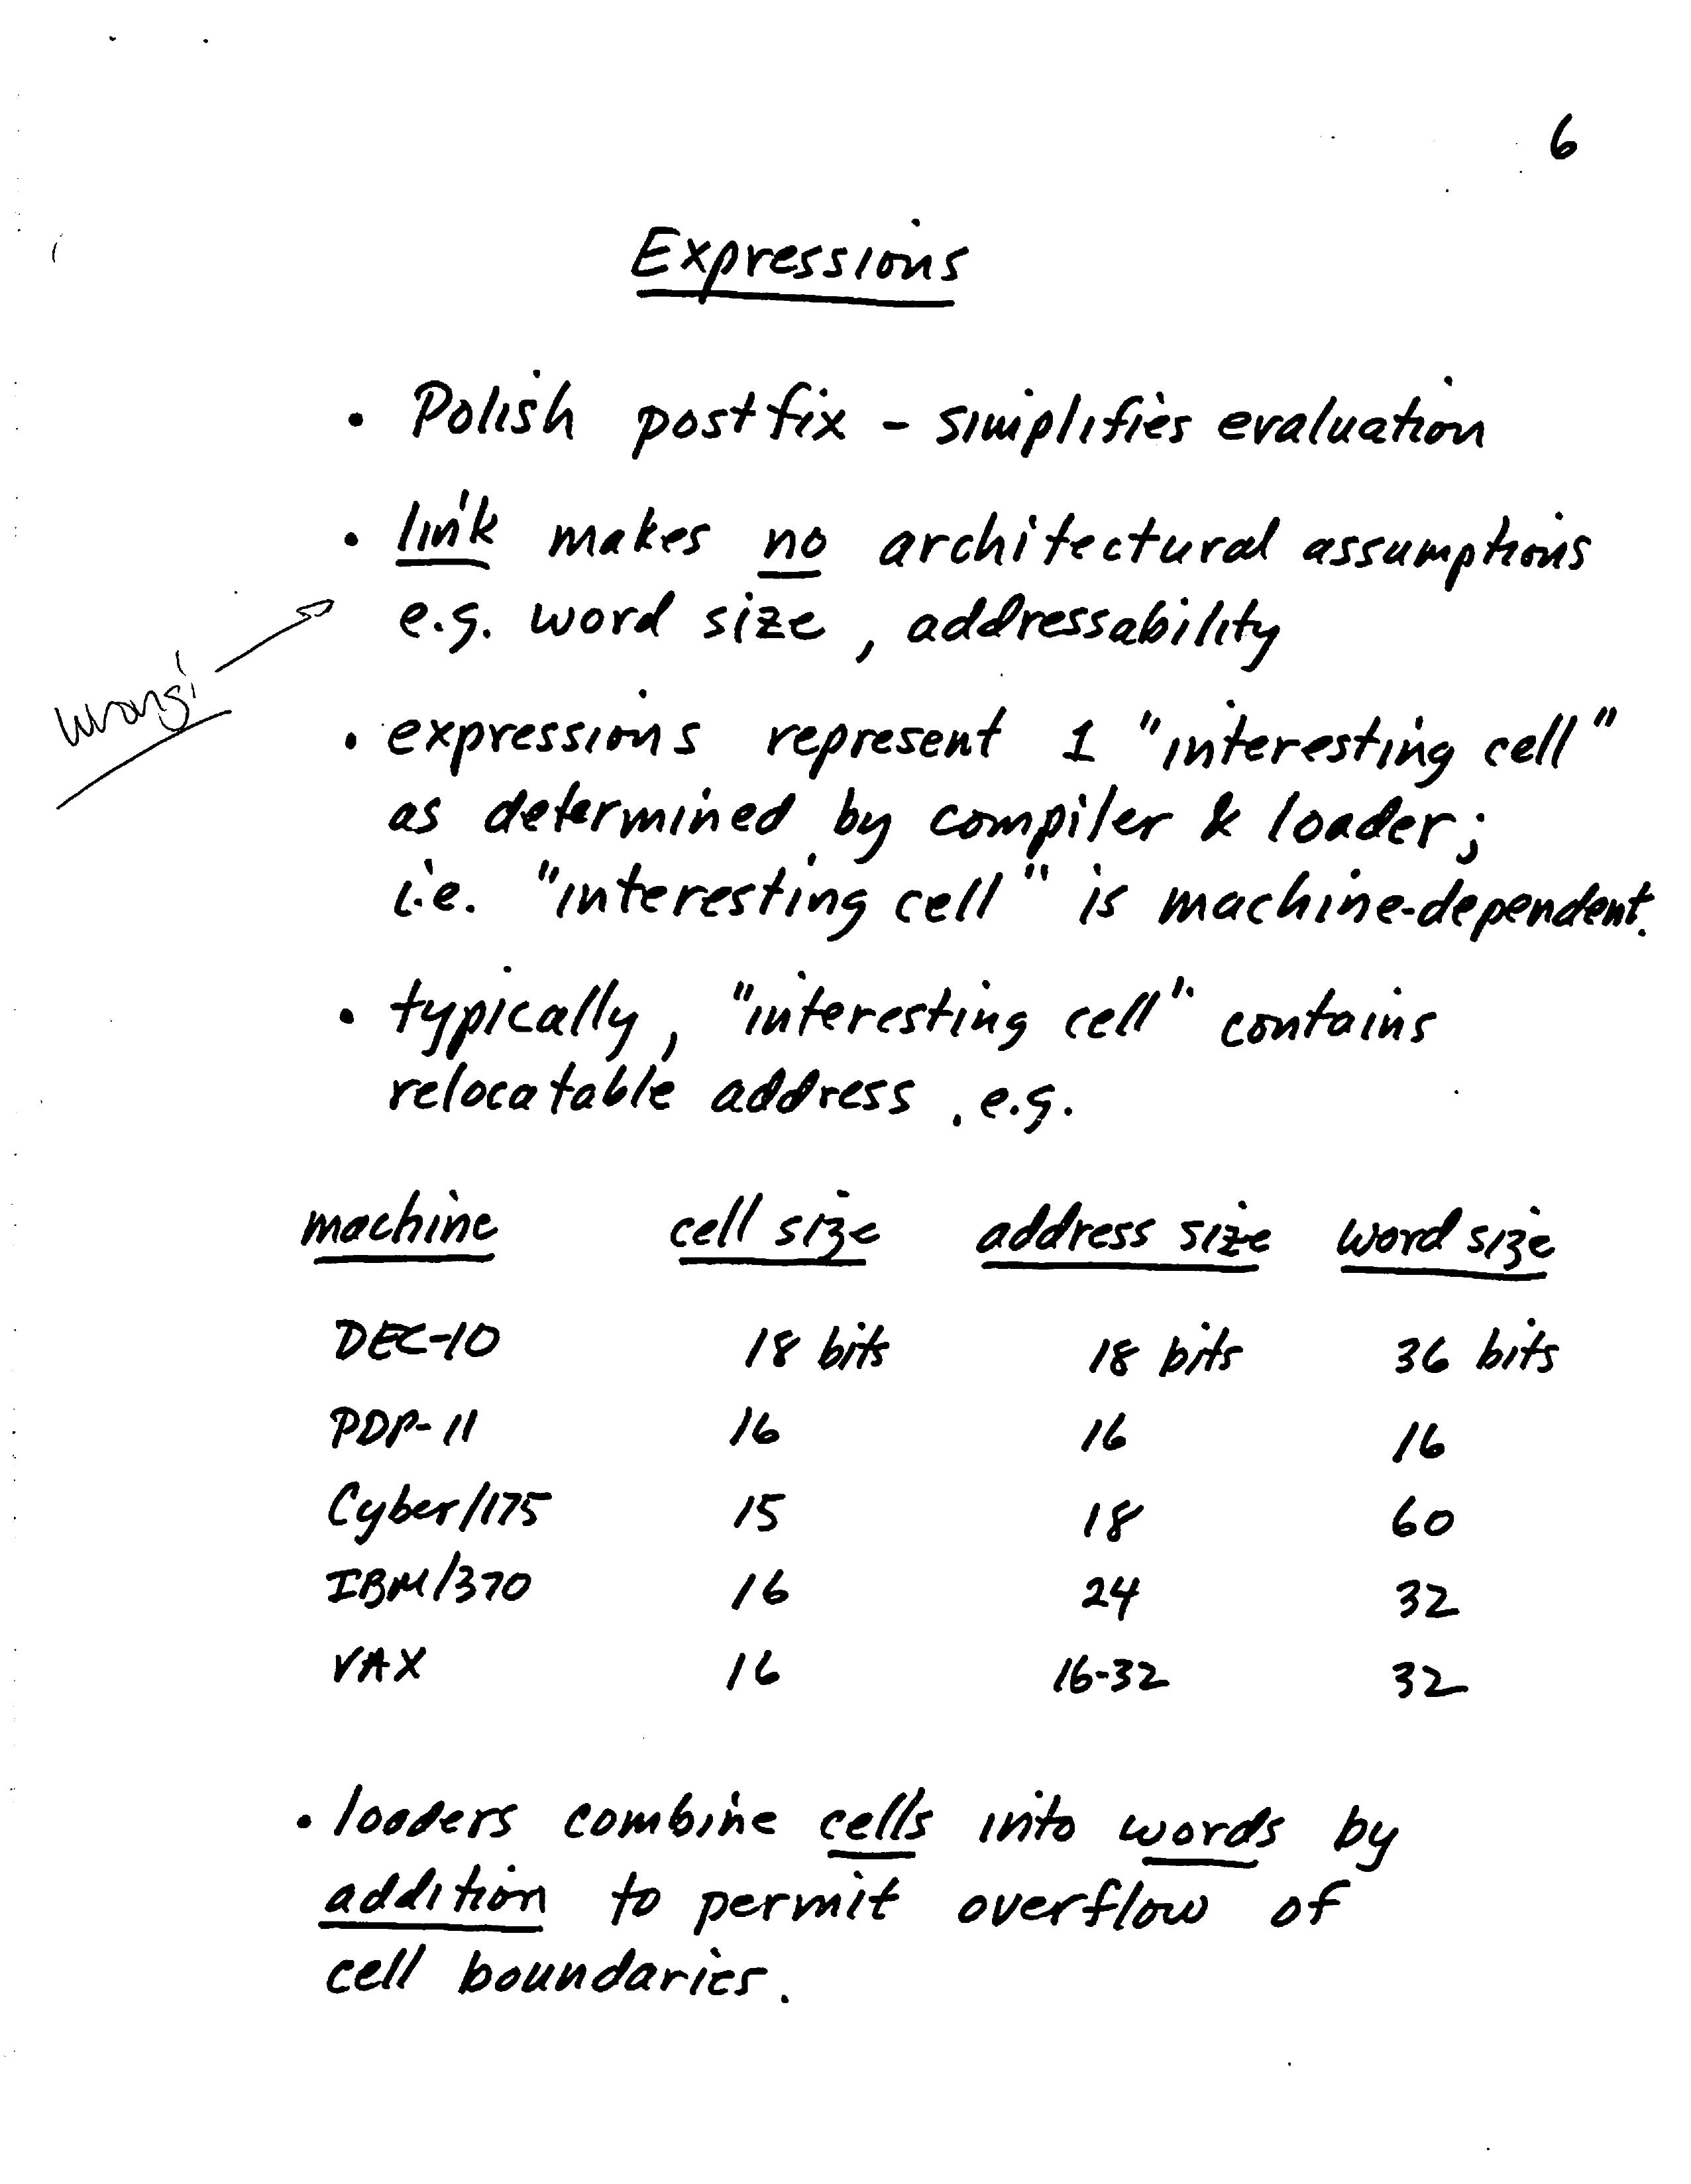 6
Expressions
• Polish postfix - simplifies evaluation
• link makes no architectural assumptions
e.g. word size, addressability
wrong!
• expressions represent 1 "interesting cell"
as determined by compiler & loader;
i.e. "interesting cell" is machine-dependent.
• typically, "interesting cell" contains
relocatable address, e.g.
machine cell size address size word size
DEC-10 18 bits 18 bits 36 bits
PDP-11 16 16 16
Cyber/175 15 18 60
IBM/370 16 24 32
VAX 16 16-32 32
• loaders combine cells into words by
addition to permit overflow of
cell boundaries.